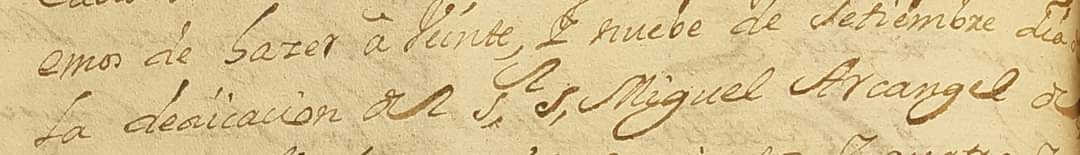 emos de hazer â Veinte, Y nuebe de Setiembre dia
la dedicacion del S, S, Miguel Arcangel de